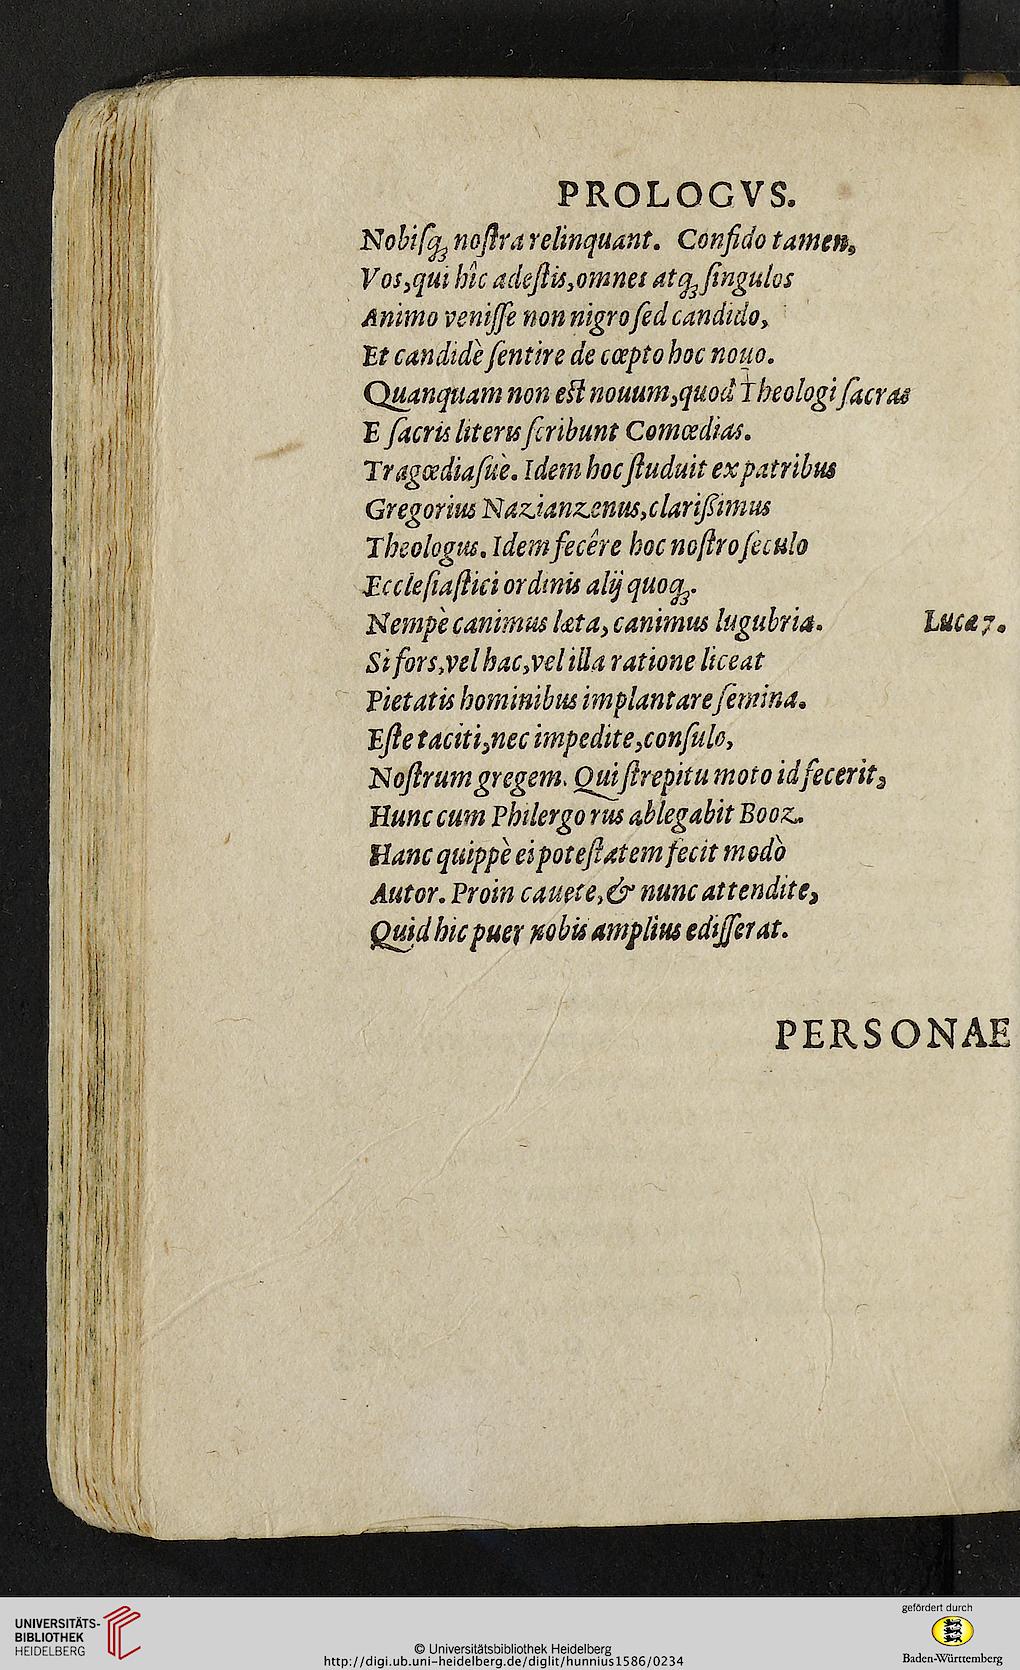 PROLOGVS.
Nobiſq; noſtra relinquant. Confido tamen,
Vos, qui hîc adeſtis, omnes atq; ſingulos
Animo veniſſe non nigro ſed candido,
Et candidè ſentire de cœpto hoc nouo.
Quanquam non eſt nouum, quod Theologi ſacras
E ſacris literis ſcribunt Comœdias.
Tragœdiaſuè. Idem hoc ſtuduit ex patribus
Gregorius Nazianzenus, clariſsimus
Theologus. Idem fecêre hoc noſtro ſeculo
Eccleſiaſtici ordinis alij quoq;.
Nempè canimus læta, canimus lugubria. Lucæ 7.
Si fors, vel hac, vel illa ratione liceat
Pietatis hominibus implantare ſemina.
Eſte taciti, nec impedite, conſulo,
Noſtrum gregem. Qui ſtrepitu moto id fecerit,
Hunc cum Philergo rus ablegabit Booz.
Hanc quippè ei poteſtatem fecit modò
Autor. Proin cauete, & nunc attendite,
Quid hic puer nobis amplius ediſſerat.
PERSONAE
UNIVERSITÄTS-
BIBLIOTHEK
HEIDELBERG
© Universitätsbibliothek Heidelberg
http://digi.ub.uni-heidelberg.de/diglit/hunnius1586/0234
gefördert durch
Baden-Württemberg